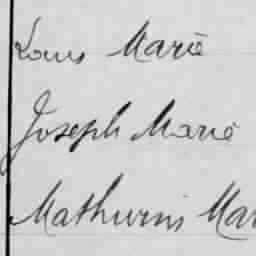 Louis Marie
Joseph Marie
Mathurin Mar